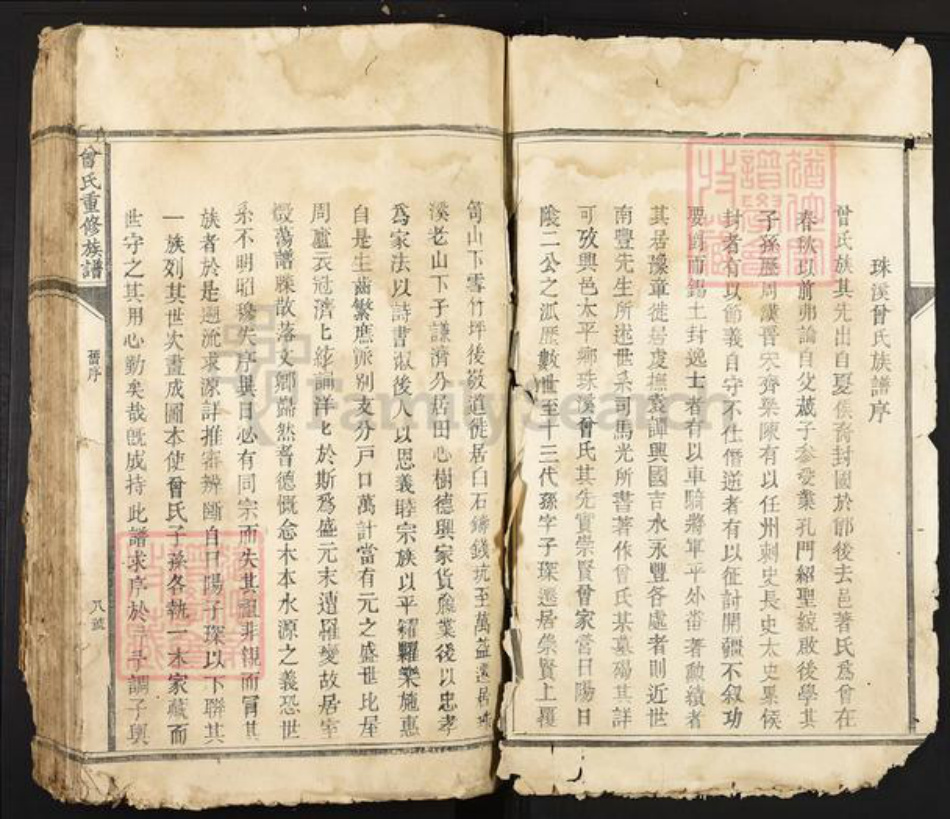 珠溪曾氏族譜序
曾氏族其先出自夏侯裔封國於鄫後去邑著氏爲曾在
春秋以前弗論自父蒧子參受業孔門紹聖統啟後學其
子孫歷周漢晉宋齊梁陳有以任州刺史長史太史果候
封者有以節義自守不仕僭逆者有以征討開疆不叙功
要爵而錫土封逸士者有以車騎將軍平外番著勳績者
其居豫章徙居虔撫袁譚興國吉水永豐各處者則近世
南豐先生所述世系司馬光所書著作曾氏某墓碣其詳
可攷興邑太平鄉珠溪曾氏其先實崇賢曾家營日陽日
陰二公之派歷數世至十三代孫字子琛遷居崇賢上覆
笥山下雪竹坪後敬道徙居白石鑄錢坑至萬益遷居珠
溪老山下子謙濟外居田心樹德興家貨饒業後以忠孝
爲家法以詩書淑後人以思義睦宗族以平糴糶樂施惠
自是生齒繁庶派別支分戸口萬計當有元之盛世比屋
周廬衣冠濟匕絃誦洋匕於斯爲盛元末遭罹變故居室
燬蕩譜牒散落文鄉巋然耆德慨念木本水源之義恐世
系不明昭穆失序異日必有同宗而失其祖非親而冒其
族者於是遡流求源詳推審辨斷自日陽子琛以下聯其
一族列其世次畫成圖本使曾氏子孫各執一本家藏而
世守之其用心勤矣哉旣成持此譜求序於予予謂子輿
曾氏重修族譜
舊序
八號
FamilySearch